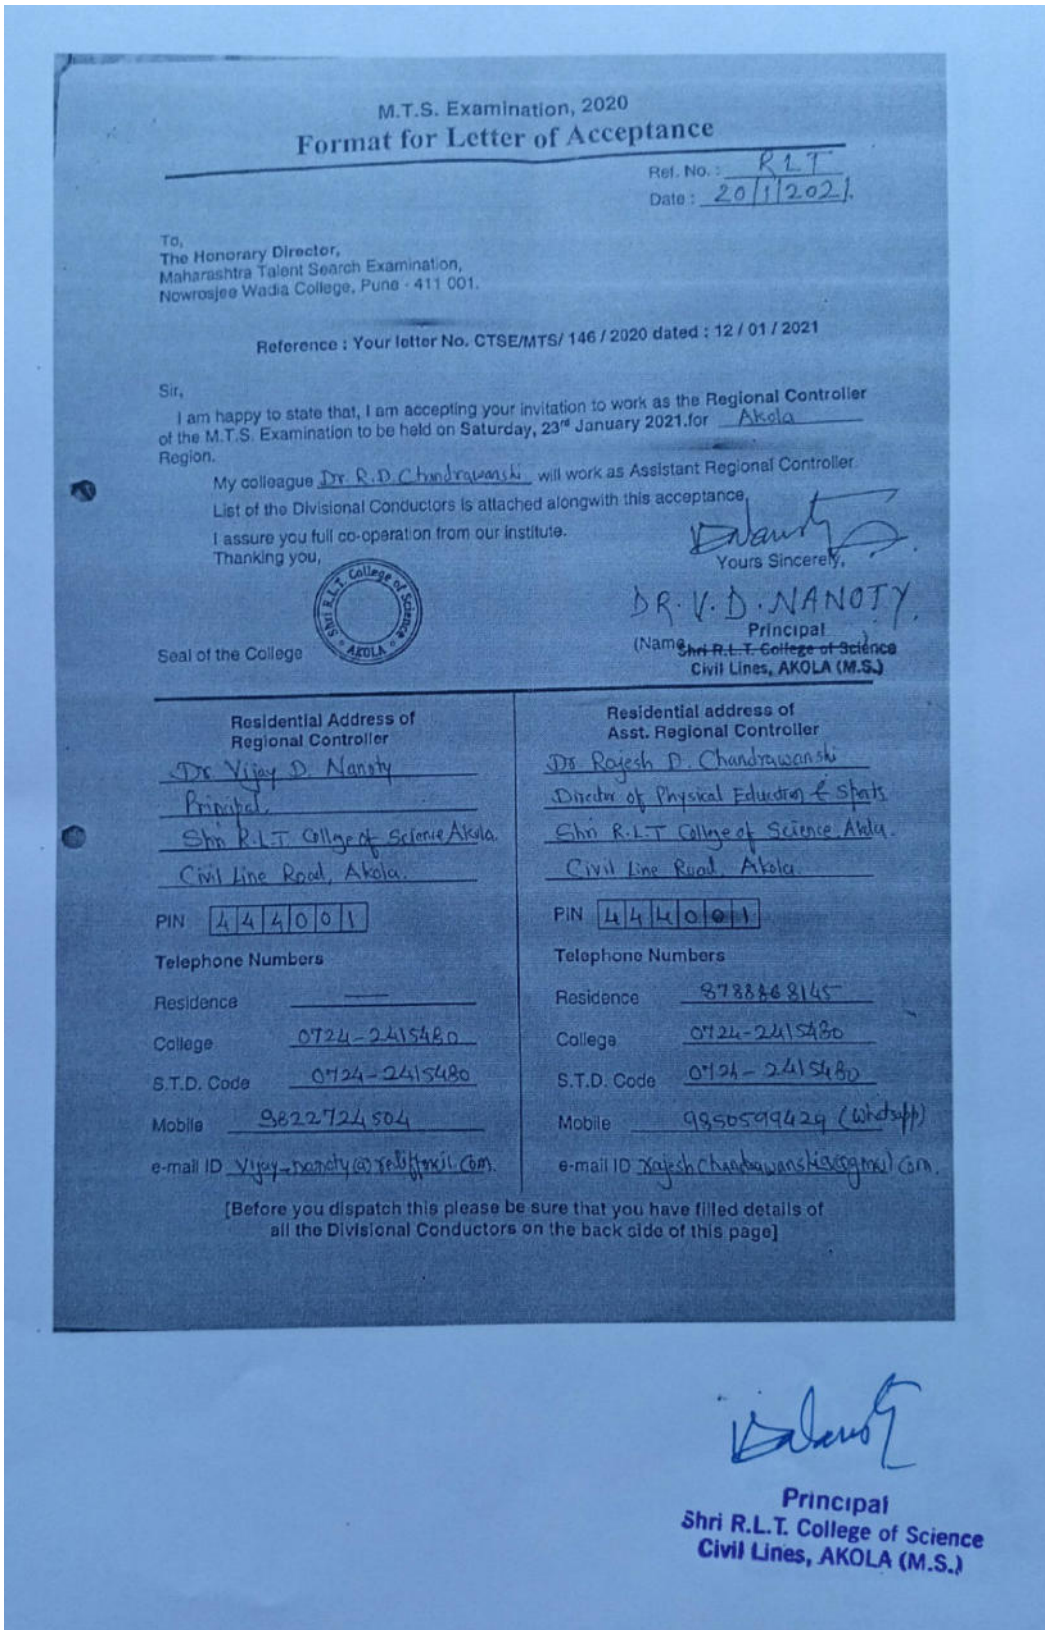 M.T.S. Examination, 2020
Format for Letter of Acceptance
Ref. No. : RLT
Date : 20/1/2021.
To,
The Honorary Director,
Maharashtra Talent Search Examination,
Nowrosjee Wadia College, Pune - 411 001.
Reference : Your letter No. CTSE/MTS/ 146 / 2020 dated : 12 / 01 / 2021
Sir,
I am happy to state that, I am accepting your invitation to work as the Regional Controller
of the M.T.S. Examination to be held on Saturday, 23rd January 2021.for Akola
Region.
My colleague Dr. R.D. Chandrawanshi will work as Assistant Regional Controller.
List of the Divisional Conductors is attached alongwith this acceptance.
I assure you full co-operation from our institute.
Thanking you,
Yours Sincerely,
Shri R.L.T. College of Science
AKOLA
DR. V. D. NANOTY
Principal
Seal of the College
(Name Shri R.L.T. College of Science
Civil Lines, AKOLA (M.S.)
Residential Address of
Regional Controller
Dr Vijay D. Nanoty
Principal
Shri R.L.T. College of Science Akola.
Civil Line Road, Akola.
PIN 444001
Telephone Numbers
Residence —
College 0724-2415480
S.T.D. Code 0724-2415480
Mobile 9822724504
e-mail ID
Residential address of
Asst. Regional Controller
Dr Rajesh D. Chandrawanshi
Director of Physical Education & Sports
Shri R.L.T College of Science Akola.
Civil Line Road, Akola.
PIN 444001
Telephone Numbers
Residence
College 0724-2415480
S.T.D. Code 0724-2415480
Mobile 9850599429 (Whatsapp)
e-mail ID
[Before you dispatch this please be sure that you have filled details of
all the Divisional Conductors on the back side of this page]
Principal
Shri R.L.T. College of Science
Civil Lines, AKOLA (M.S.)